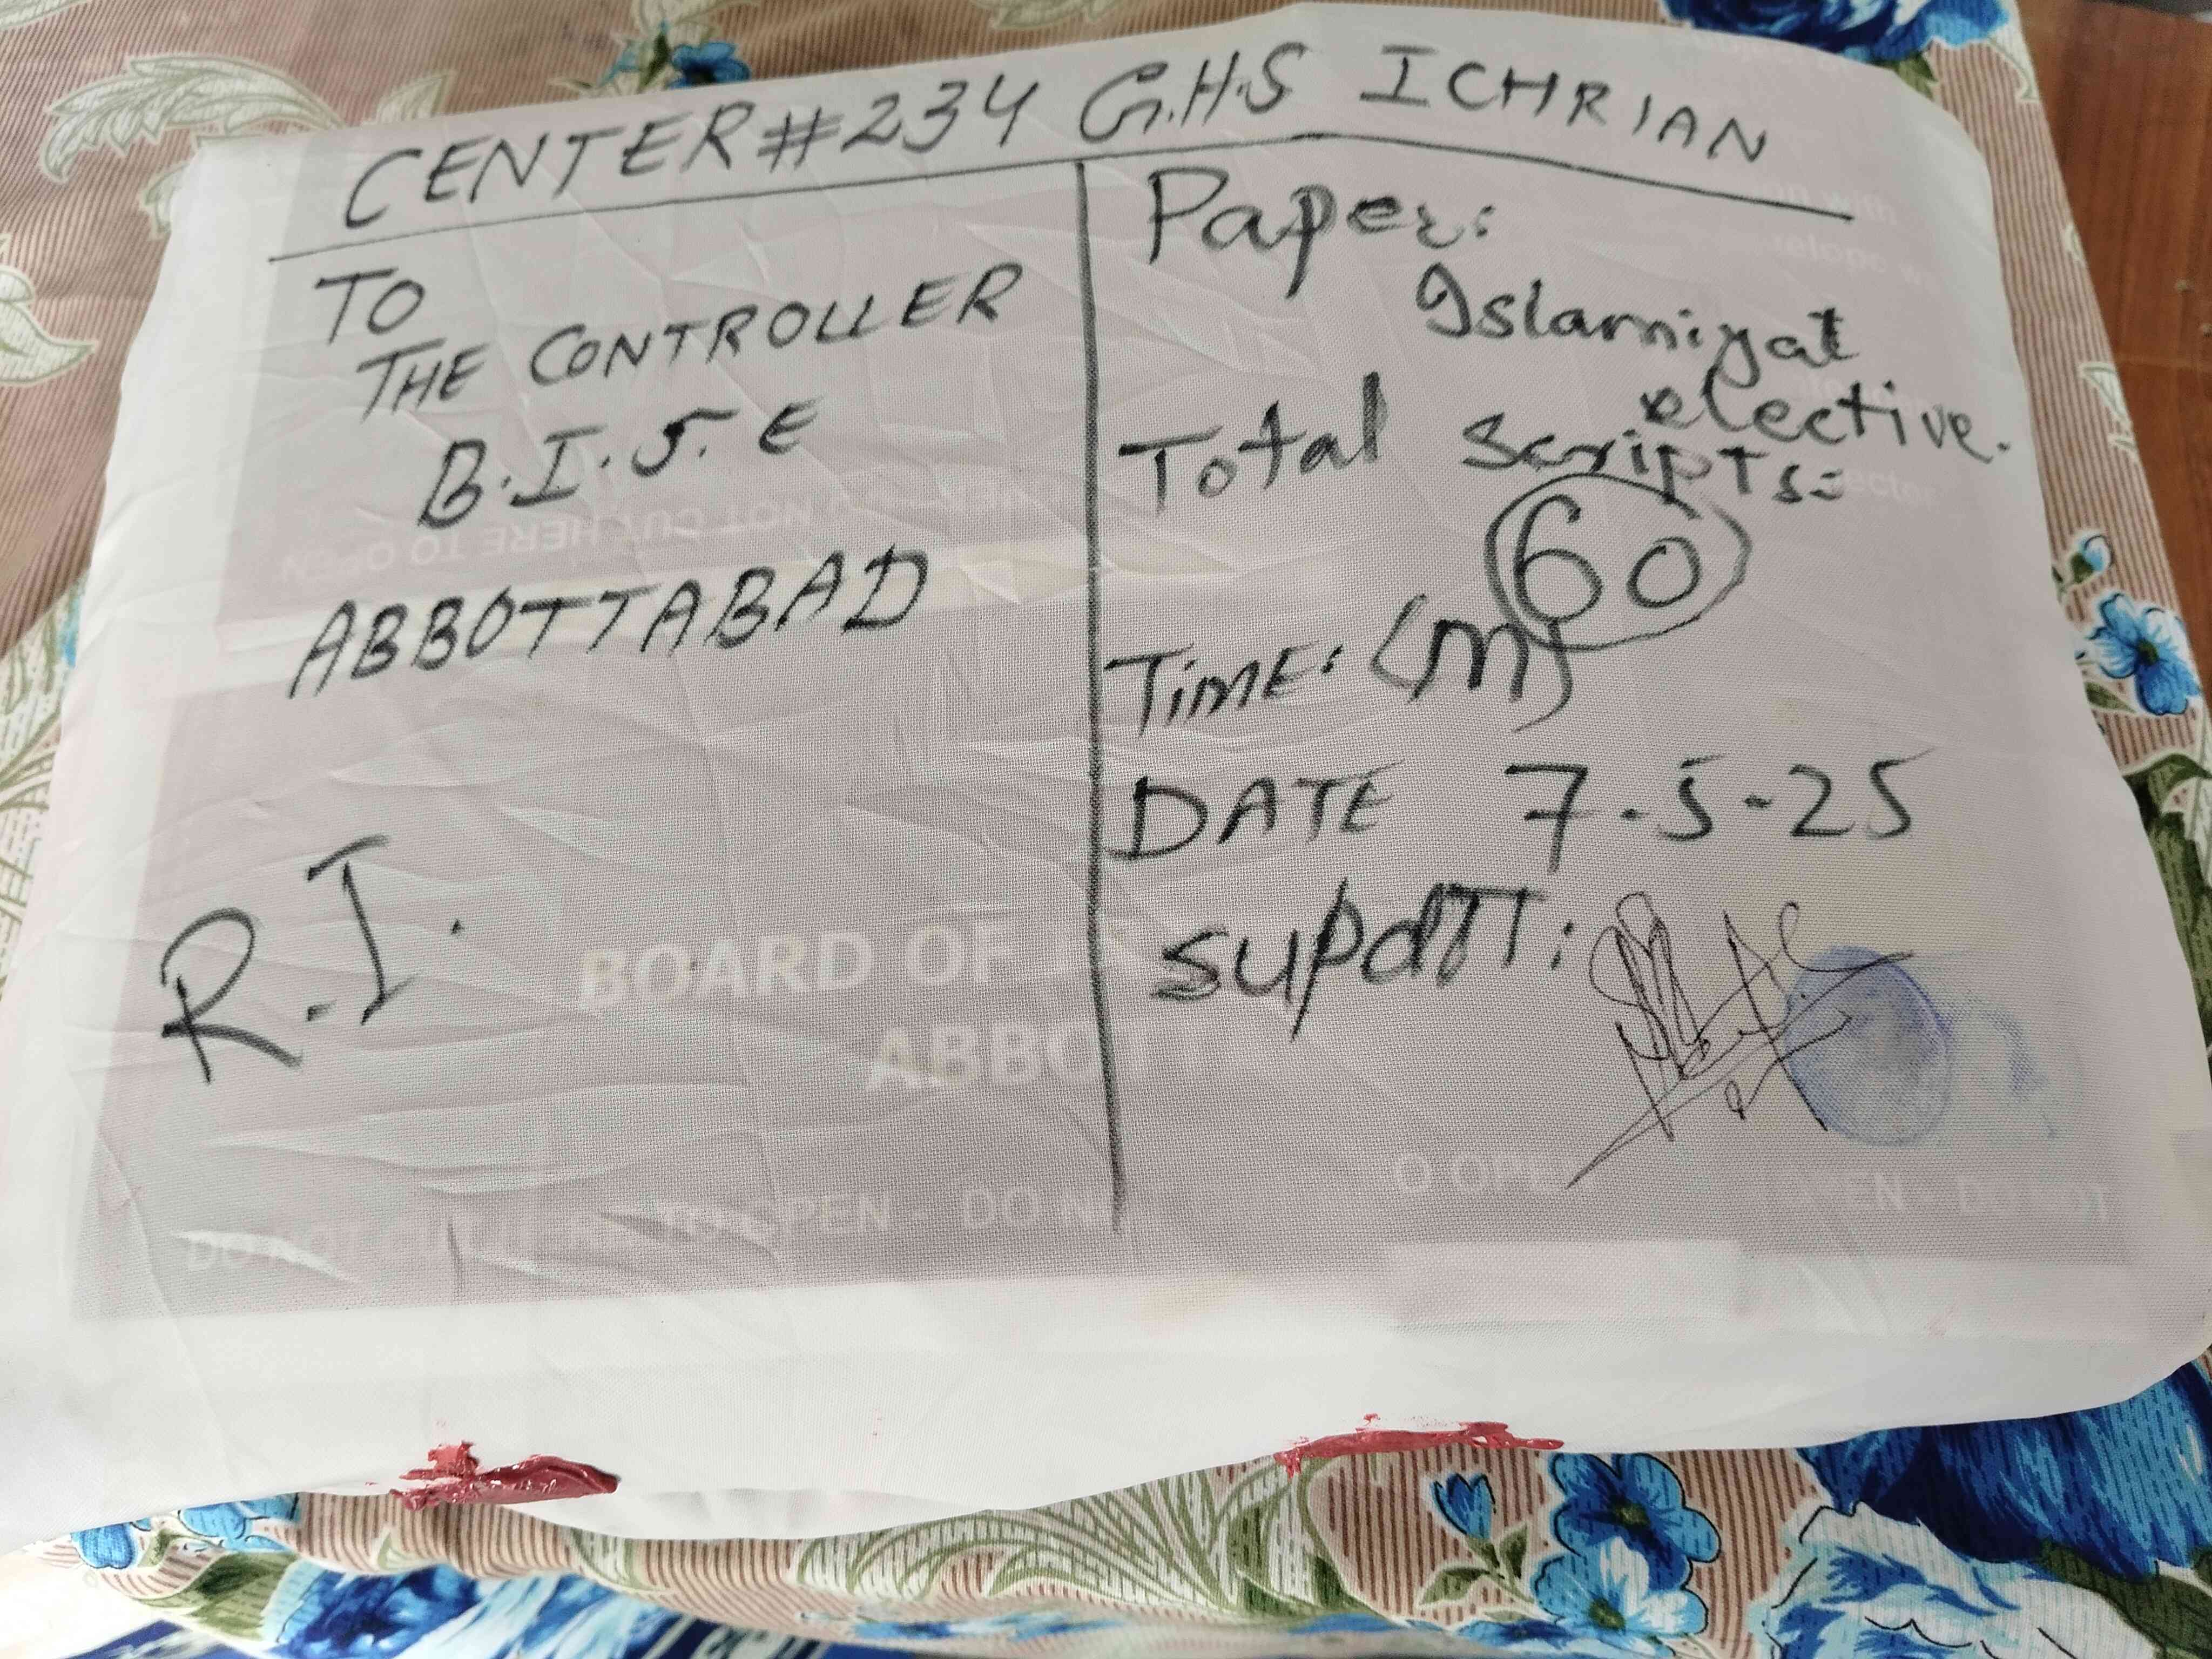 CENTER#234 G.H.S ICHRIAN
TO
THE CONTROLLER
B.I.S.E
ABBOTTABAD
R.I.
Paper:
Islamiyat
elective.
Total Scripts=
60
TIME: (M)
DATE 7-5-25
SUPdTT:
BOARD OF
DO NOT CUT HERE TO OPEN - DO N